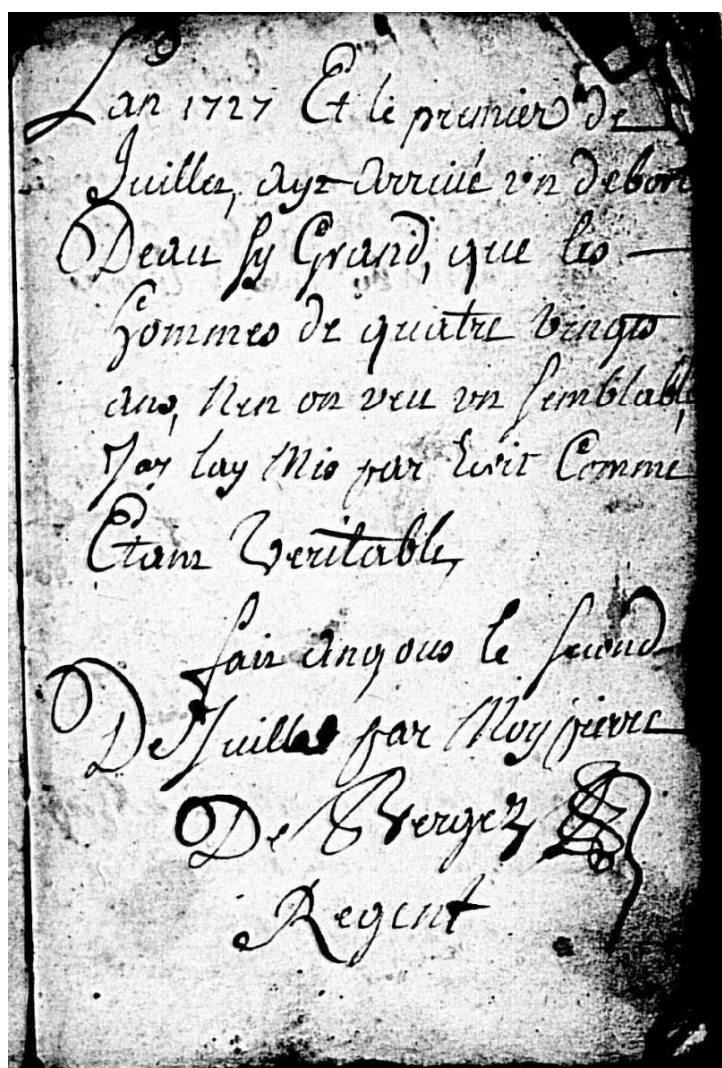 Lan 1727 Et le premier de
Juillet, ayt arriué vn debort
Deau sy Grand, que les
hommes de quatre vingts
ans, Nen on veu vn semblable,
Jay lay Mis par Ecrit Comme
Etant Veritable,
fait angous le second
De Juillet par Moy pierre
De Vergez
Regent